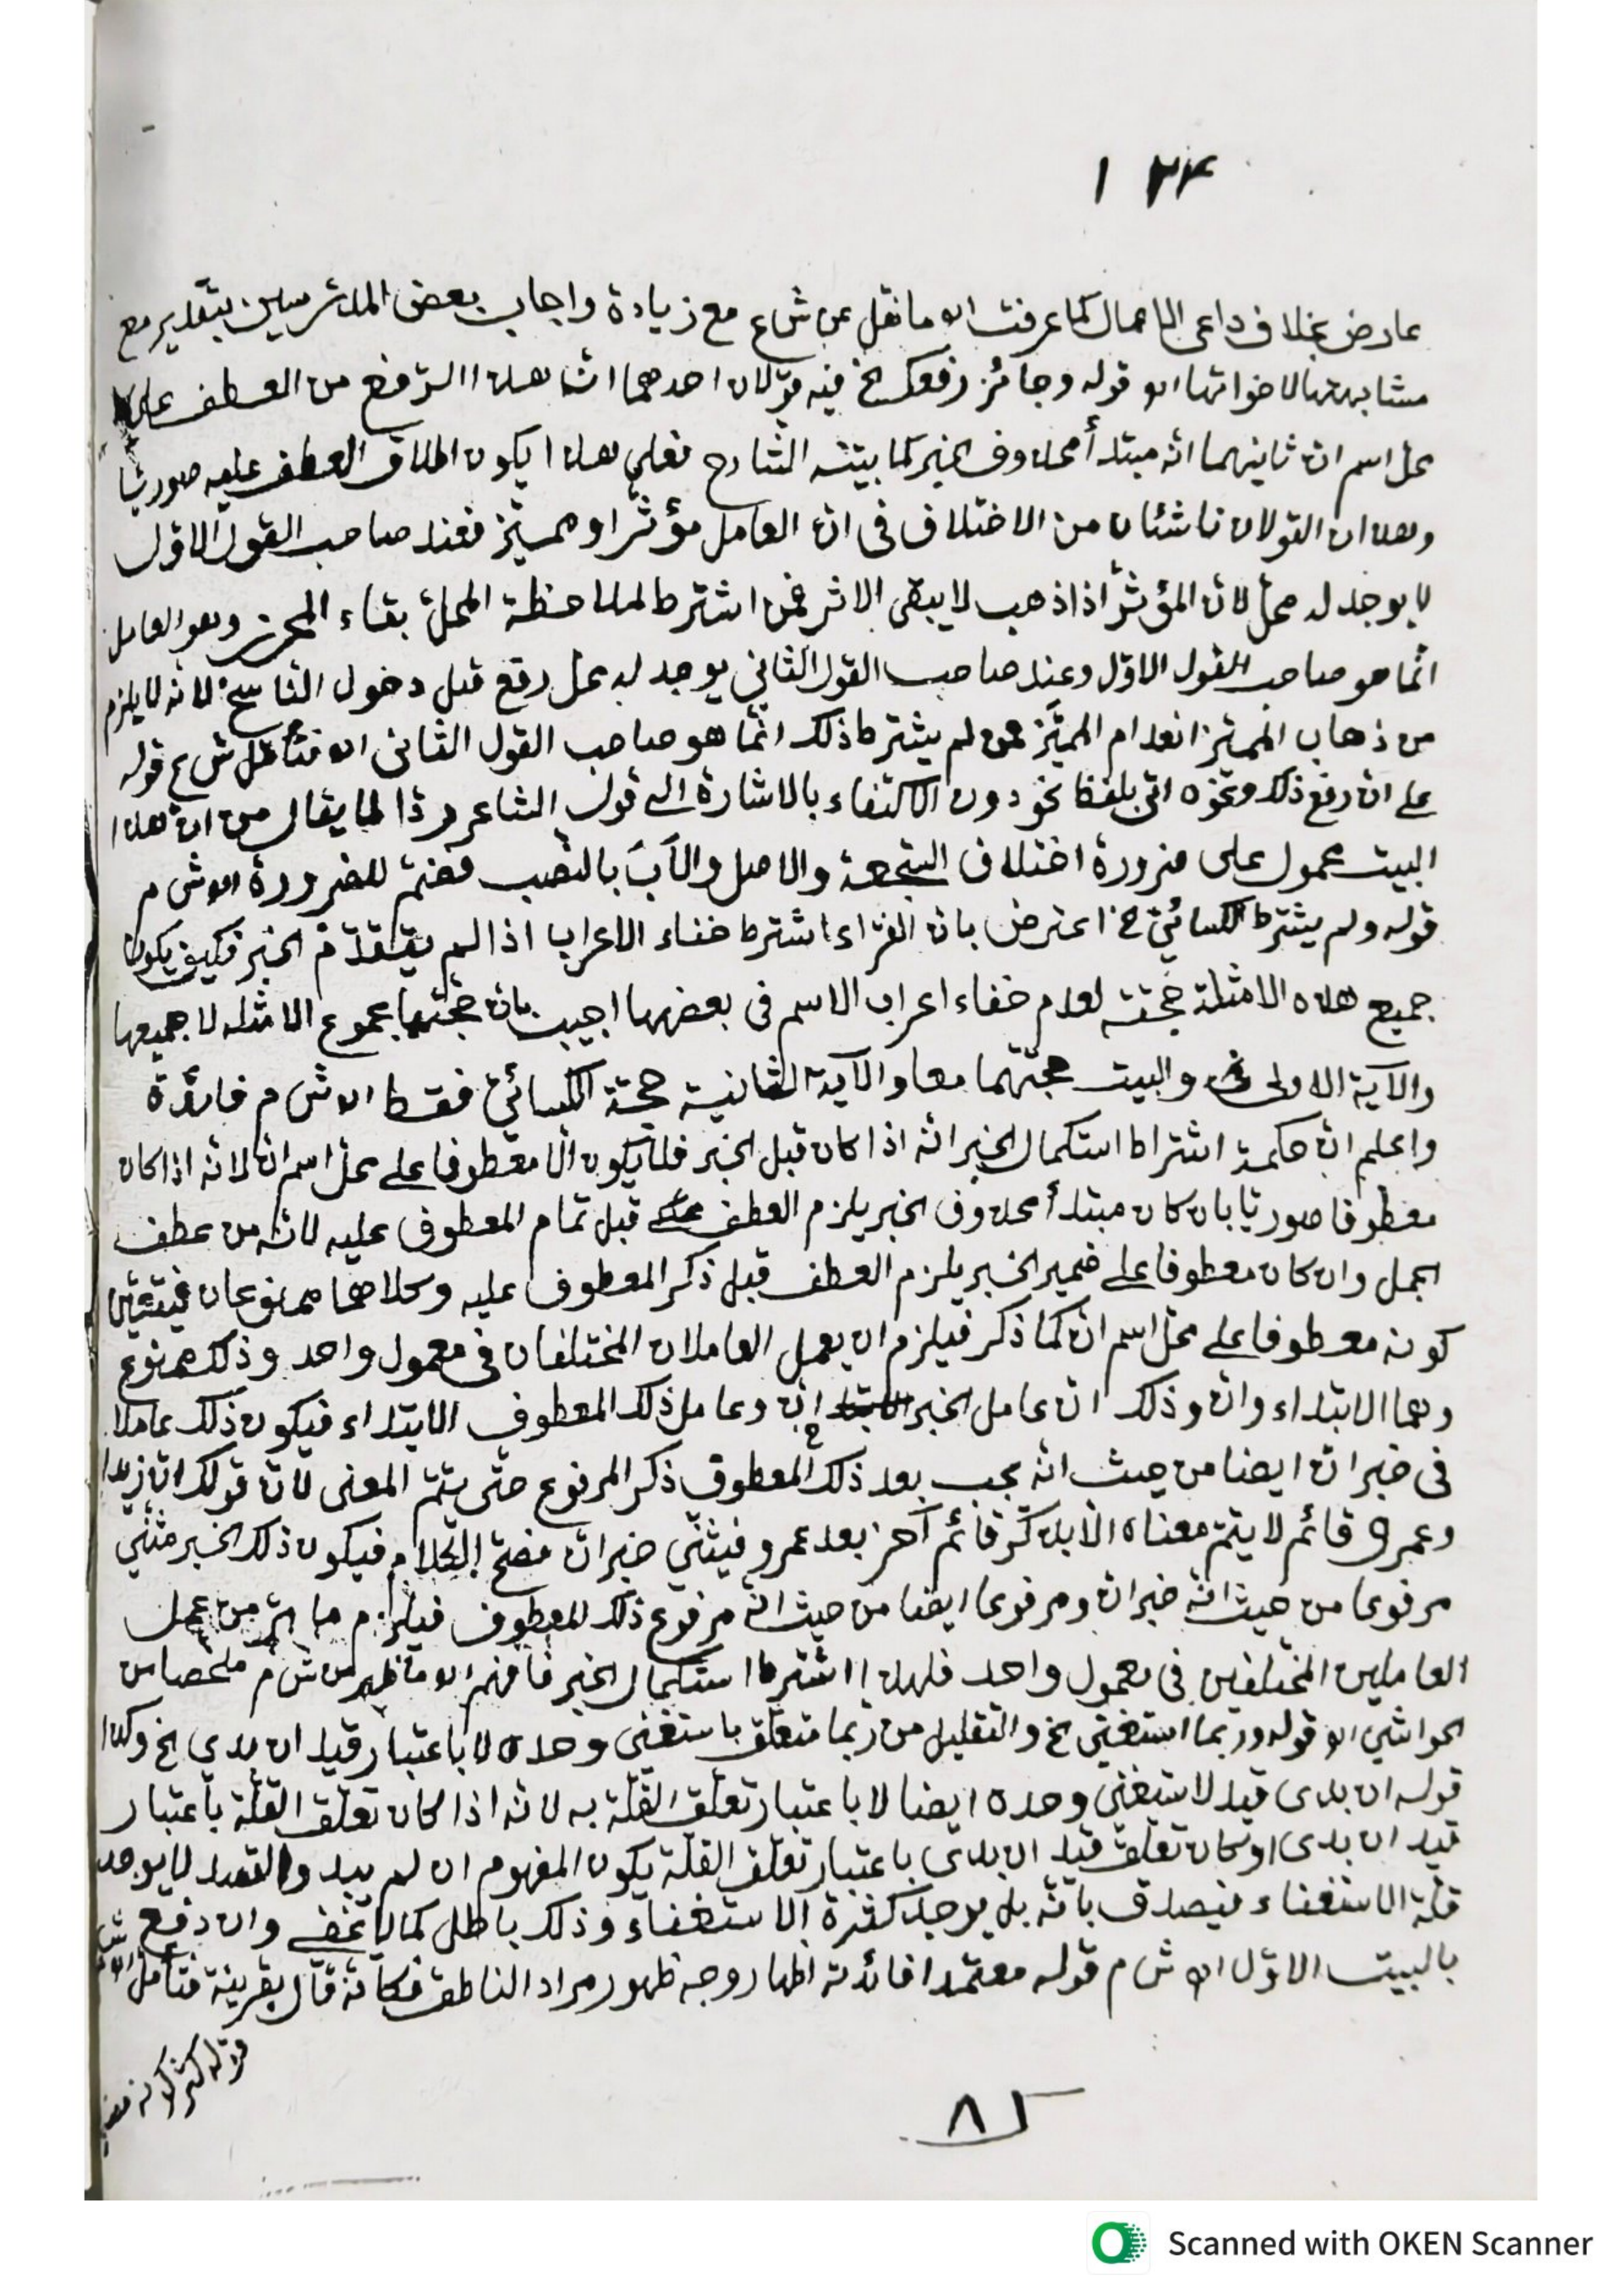 ١٢٤
عارض بخلاف داعى الاعمال كما عرفت اه ما نقل عن ش ع مع زيادة واجاب بعض المدرسين بتقدير مع
مشابهتها لاخواتها اه قوله وجائز رفعك الخ فيه قولان احدهما انّ هذا الرفع من العطف على
محل اسم ان ثانيهما انّه مبتدأ محذوف الخبر كما بيّنه الشارح فعلى هذا يكون اطلاق العطف عليه صوريّا
وهذان القولان ناشئان من الاختلاف فى انّ العامل مؤثّر او مميّز فعند صاحب القول الاوّل
لا يوجد له محلّ لانّ المؤثّر اذا ذهب لا يبقى الاثر فمن اشترط لملاحظة المحلّ بقاء المحرز وهو العامل
انّما هو صاحب القول الاوّل وعند صاحب القول الثّاني يوجد له محل رفع قبل دخول النّاسخ لانّه لا يلزم
من ذهاب المميّز انعدام المميَّز فمن لم يشترط ذلك انّما هو صاحب القول الثانى اه فتأمّل ش ع قوله
على انّ رفع ذلك ونحوه اتى بلفظ نحو دون الاكتفاء بالاشارة الى قول الشاعر ردّا لما يقال من انّ هذا
البيت محمول على ضرورة اختلاف والاصل والآبَ بالنّصب فضمّ للضرورة اه ش م
قوله ولم يشترط الكسائيّ الخ اعترض بانّ الفرّاء اشترط خفاء الاعراب اذا لم يتقدّم الخبر فكيف يكون
جميع هذه الامثلة حجّته لعدم خفاء اعراب الاسم فى بعضها اجيب بانّ حجّتهما مجموع الامثله لا جميعها
والآية الاولى والبيت حجّتهما معا والآية الثانية حجّة الكسائيّ فقط اه ش م فائدة
واعلم انّ حكمة اشتراط استكمال الخبر انّه اذا كان قبل الخبر فلا يكون الّا معطوفا على محلّ اسم انّ لانّه اذا كان
معطوفا صوريّا بان كان مبتدأ محذوف الخبر يلزم العطف قبل تمام المعطوف عليه لانّه من عطف
الجمل وان كان معطوفا على ضمير الخبر يلزم العطف قبل ذكر المعطوف عليه وكلاهما ممنوعان فيتعيّن
كونه معطوفا على محلّ اسم انّ كما ذكر فيلزم ان يعمل العاملان المختلفان فى معمول واحد وذلك ممنوع
وهما الابتداء وانّ وذلك انّ عامل الخبر انّ وعامل ذلك المعطوف الابتداء فيكون ذلك عاملا
فى خبر انّ ايضا من حيث انّه يجب بعد ذلك المعطوف ذكر المرفوع حتّى يتمّ المعنى لانّ قولك انّ زيدا
وعمرو قائم لا يتمّ معناه الّا بذكر قائم آخر بعد عمرو فيثنّي خبر انّ فصحّ الكلام فيكون ذلك الخبر مثنّي
مرفوعا من حيث انّه خبر انّ ومرفوعا ايضا من حيث انّه مرفوع ذلك المعطوف فيلزم ما مرّ من عمل
العاملين المختلفين فى معمول واحد فلهذا اشترط استكمال الخبر فافهم اه ما ظهر من ش م ملخّصا من
الحواشي اه قوله وربما استغنى الخ والتقليل من ربما متعلّق باستغنى وحده لا باعتبار قيد ان بدي الخ وكذا
قوله ان بدى قيد لاستغنى وحده ايضا لا باعتبار تعلّق القلّة به لانّه اذا كان تعلّق القلّة باعتبار
قيد ان بدى او كان تعلّق قيد ان بدي باعتبار تعلّق القلّة يكون المفهوم ان لم يبد والقصد لا يوجد
قلّة الاستغناء فيصدق بانّه بل يوجد كثرة الاستغناء وذلك باطل كما لا يخفى وان دفع
بالبيت الاوّل اه ش م قوله معتمدا فائدته اظهار وجه ظهور مراد الناطق فكأنّه قال بقرينة فتأمّل
قوله
٨٢
Scanned with OKEN Scanner